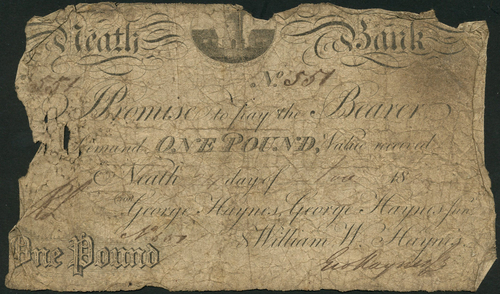 Neath Bank
551 No. 551
I Promise to pay the Bearer
Demand ONE POUND, Value received
Neath day of 18
George Haynes, George Haynes Junr.
No. 551 William W. Haynes
One Pound Geo Haynes Jr